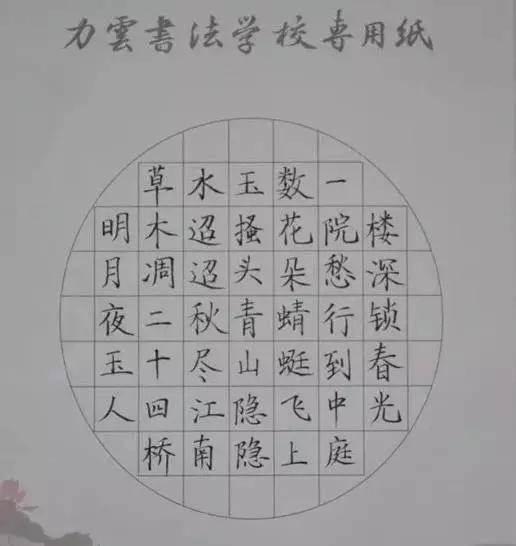 力雲書法学校専用纸
楼深锁春光
一院愁行到中庭
数花朵蜻蜓飞上
玉搔头青山隐隐
水迢迢秋尽江南
草木凋二十四桥
明月夜玉人